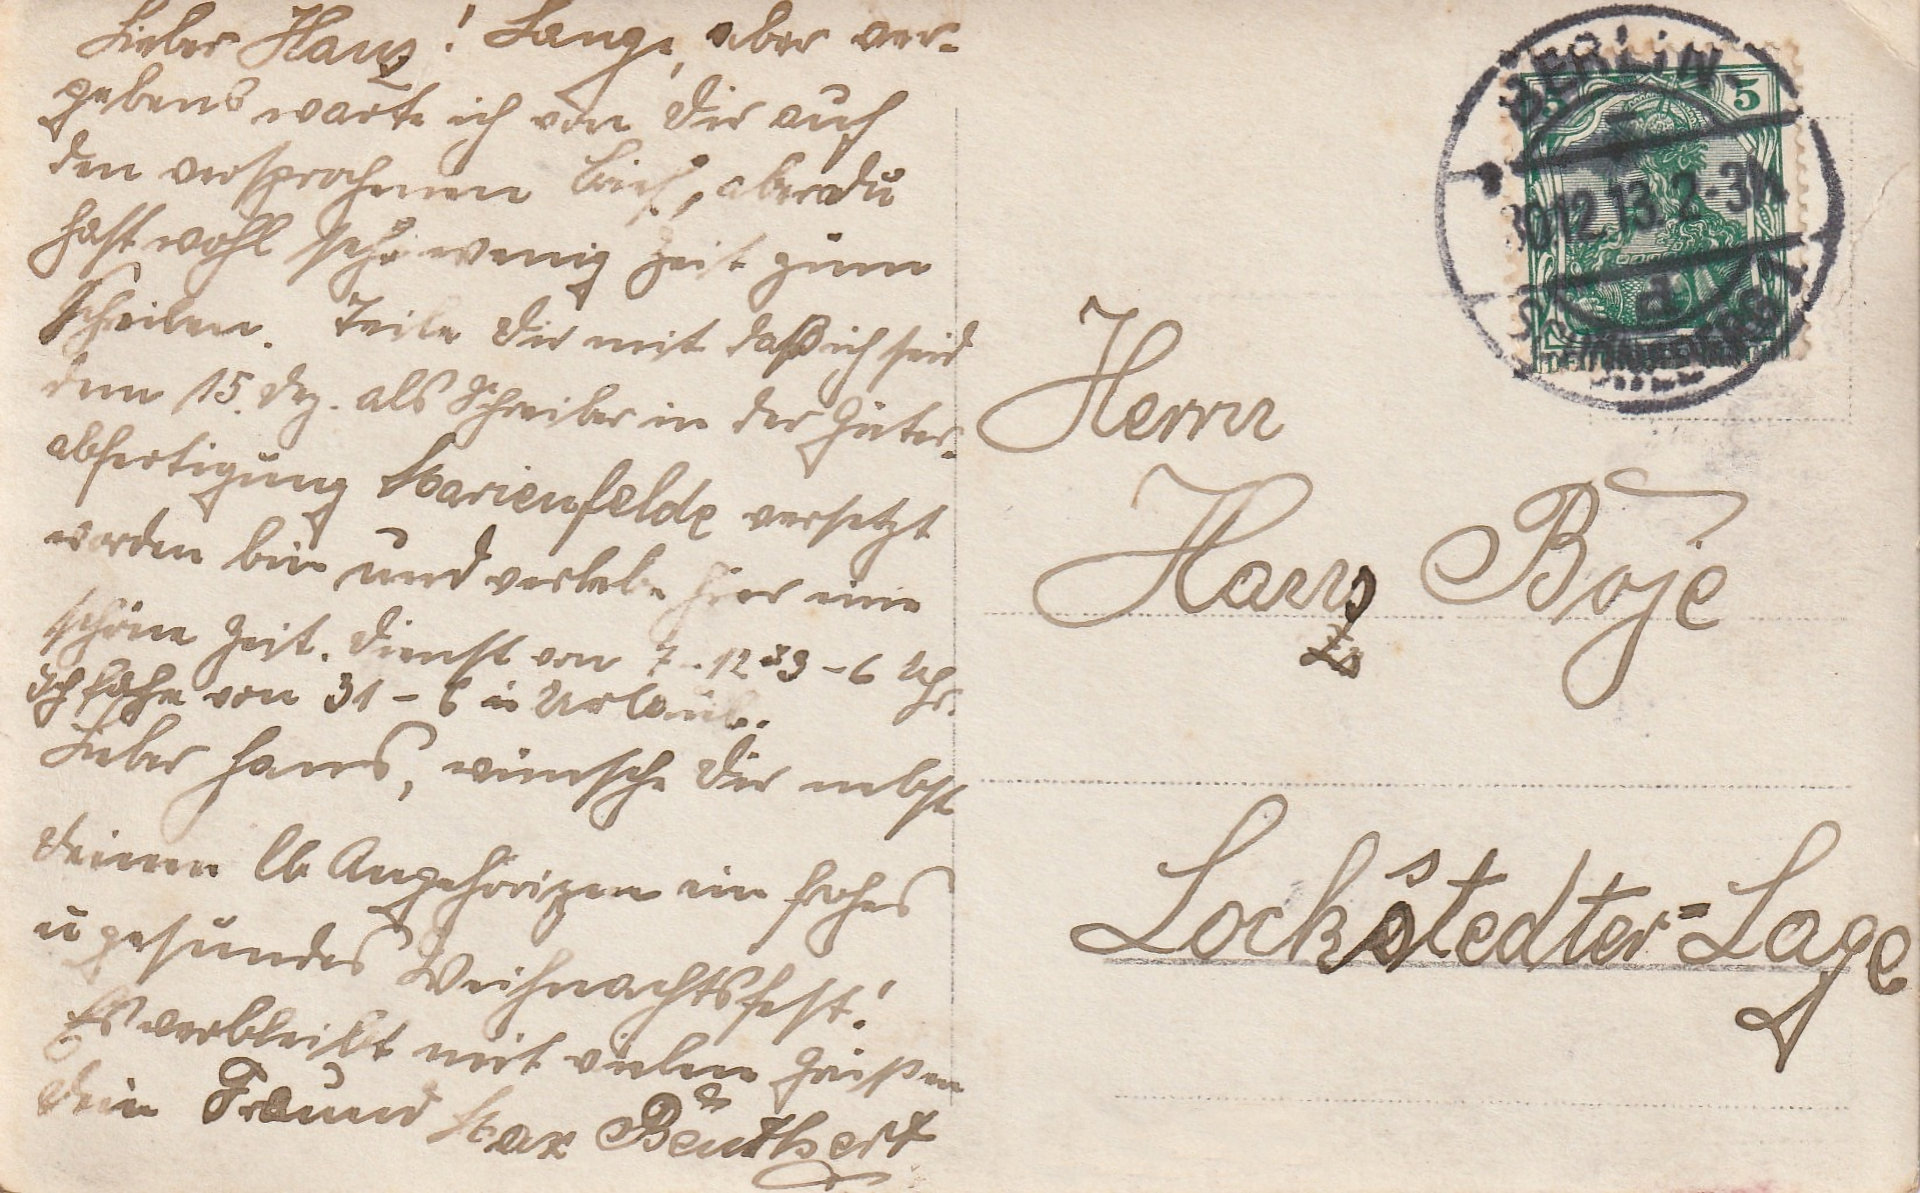 Lieber Hans! Lange, aber ver-
gebens warte ich von Dir auf
den versprochenen Brief, aber du
hast wohl sehr wenig Zeit zum
Schreiben. Teile Dir mit daß ich seid
dem 15. Dez. als Schreiber in der Güter-
abfertigung Marienfelde versetzt
worden bin und verlebe hier eine
schöne Zeit. Dienst von 7-12 3-6 Uhr.
Ich fahre von 31 - 6 in Urlaub.
Lieber Hans, wünsche Dir nebst
Deinen lb Angehörigen ein frohes
u gesundes Weihnachtsfest!
Es verbleibt mit vielen Grüßen
Dein Freund Max
BERLIN-
30.12.13.2-3N.
SCHÖNEBERG 1
d
5
Herrn
Hans Boje
Lockstedter-Lage